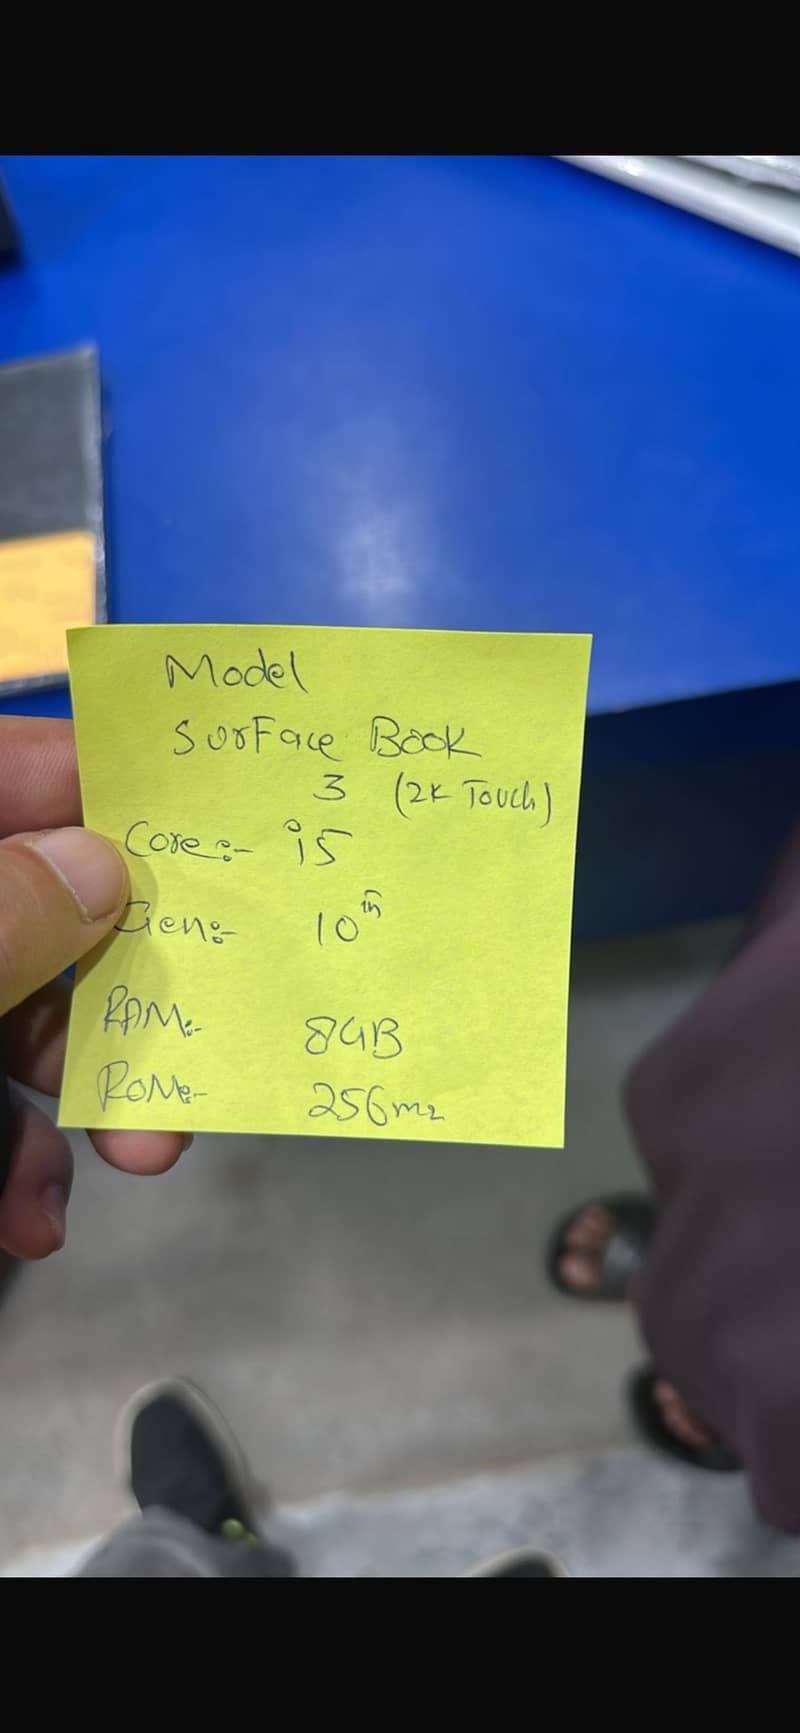 Model
Surface Book
3 (2K Touch)
Core:- i5
Gen:- 10th
RAM:- 8GB
ROM:- 256m2